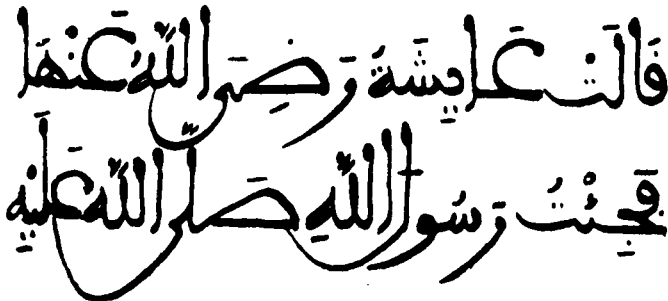 قَالَتْ عَايِشَةُ رَضِىَ اللَّهُ عَنْهَا
فَجِئْتُ رَسُولَ اللَّهِ صَلَّى اللَّهُ عَلَيْهِ